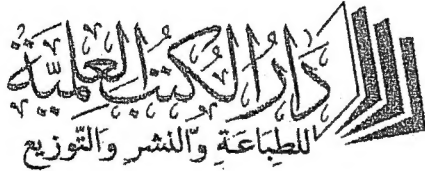 دَارُ الكُتبِ العِلميَّة
للطِبَاعَةِ وَالنشرِ والتّوزيع